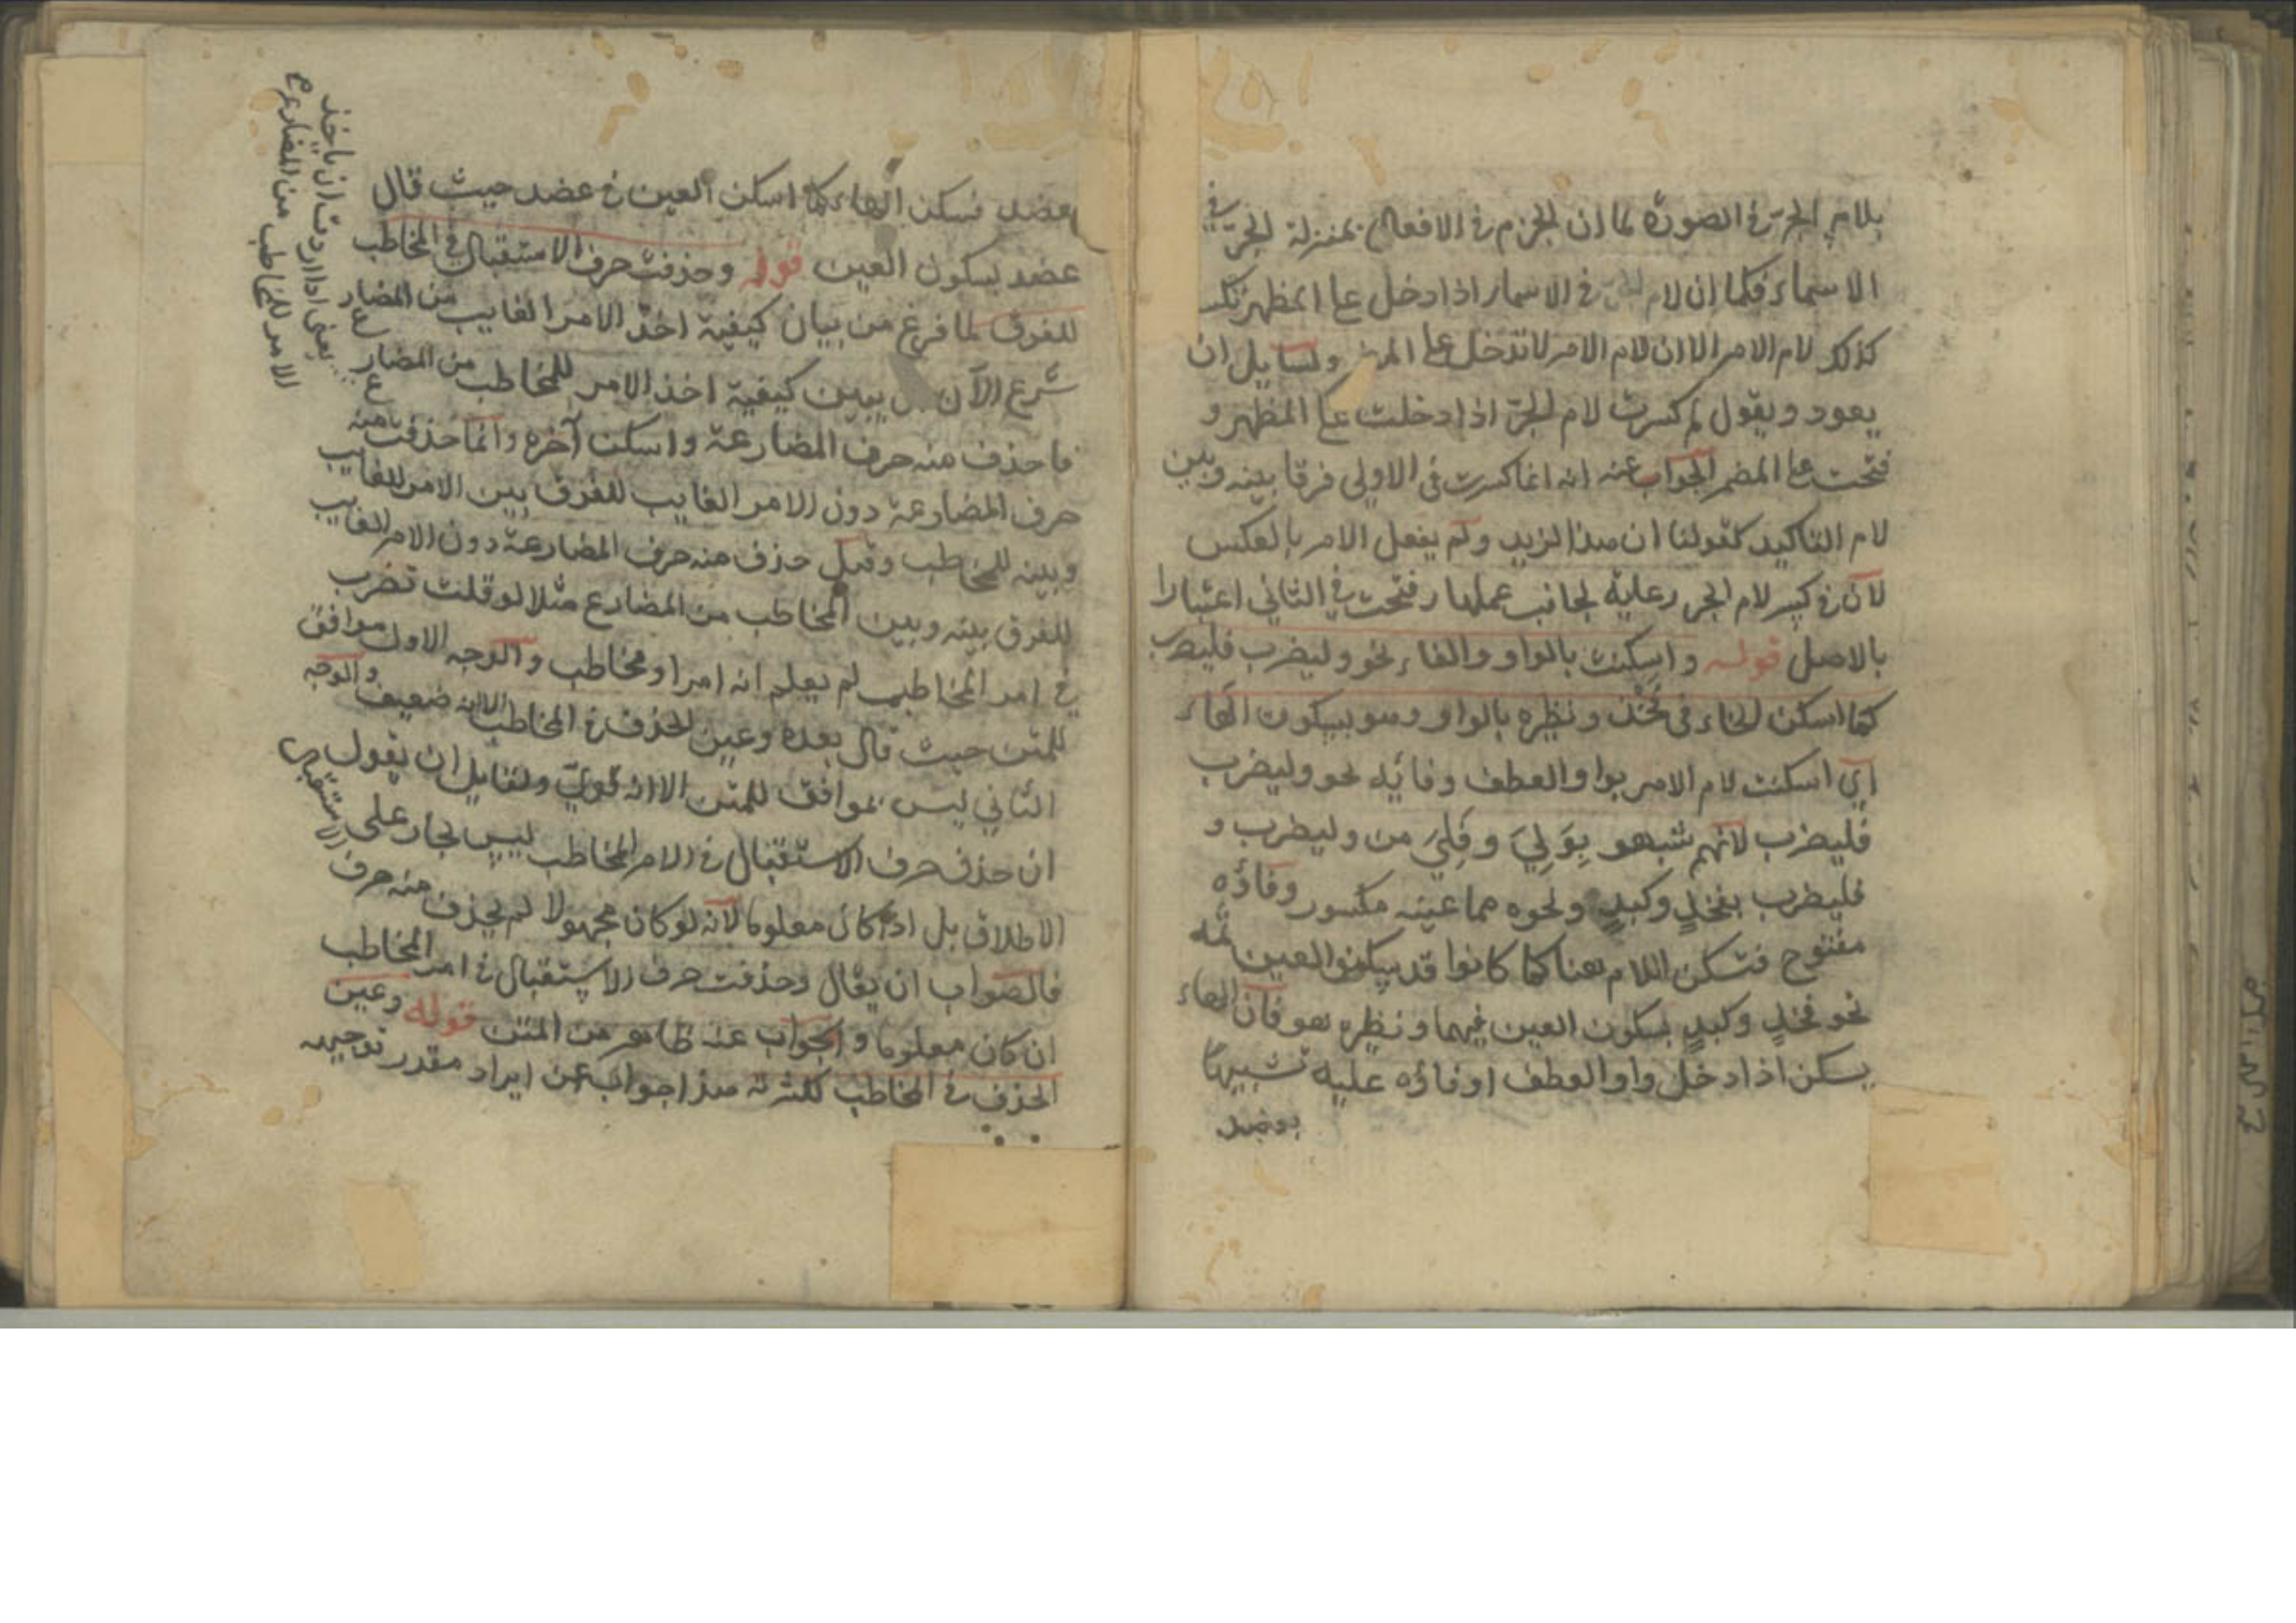 بلام الجر في الصورة لما ان الجزم في الافعال بمنزلة الجر في
الاسماء فكما ان لام في الاسماء اذا دخل على المظهر
كذلك لام الامر الا ان لام الامر لا تدخل على ولسايل ان
يعود ويقول لم كسرت لام الجر اذا دخلت على المظهر و
فتحت على المضمر الجواب عنه انه انما كسرت في الاولى فرقا بينه وبين
لام التاكيد كقولنا ان هذا لزيد ولم يفعل الامر بالعكس
لان في كسر لام الجر رعاية لجانب عملها وفتحت في الثاني اعتبارا
بالاصل قوله واسكنت بالواو والفاء نحو وليضرب فليضرب
كما اسكن الخاء في فخذ ونظيره بالواو وهو بسكون الهاء
اي اسكنت لام الامر بواو العطف وفائه نحو وليضرب
فليضرب لانهم شبهو بِوَلِيَ وفَلِيَ من وليضرب و
فليضرب بفخذٍ وكبدٍ ونحوه مما عينه مكسور وفاؤه
مفتوح فتسكن اللام هنا كما كانوا قد يسكنوا العين ثمه
نحو فخذٍ وكبدٍ بسكون العين فيهما ونظيره هو فان الهاء
يسكن اذا دخل واو العطف او فاؤه عليه تشبيها
بعضد
بعضد فسكن الهاء كما اسكن العين في عضد حيث قال
عضد بسكون العين قوله وحذفت حرف الاستقبال في المخاطب
للفرق لما فرغ من بيان كيفية اخذ الامر الغايب من المضارع
شرع الآن يبين كيفية اخذ الامر للمخاطب من المضارع
فاحذف منه حرف المضارعة واسكن آخره وانما حذفت منه
حرف المضارعة دون الامر الغايب للفرق بين الامر للغايب
وبينه للمخاطب وقيل حذف منه حرف المضارعة دون الامر الغايب
للفرق بينه وبين المخاطب من المضارع مثلا لو قلت تضرب
في امر المخاطب لم يعلم انه امر او مخاطب والوجه الاول موافق
للمتن حيث قال بعده وعين الحذف في المخاطب الا انه ضعيف والوجه
الثاني ليس بموافق للمتن الا انه قوي ولقايل ان يقول
ان حذف حرف الاستقبال في الامر المخاطب ليس بجار على
الاطلاق بل اذا كان معلوما لانه لو كان مجهولا لم يحذف منه حرف الاستقبال
فالصواب ان يقال وحذفت حرف الاستقبال في امر المخاطب
ان كان معلوما والجواب عنه ظاهر من المتن قوله وعين
الحذف في المخاطب لكثرته هذا جواب عن ايراد مقدر توجيهه
يعني اذا اردت ان ياخذ
الامر للمخاطب من المضارع